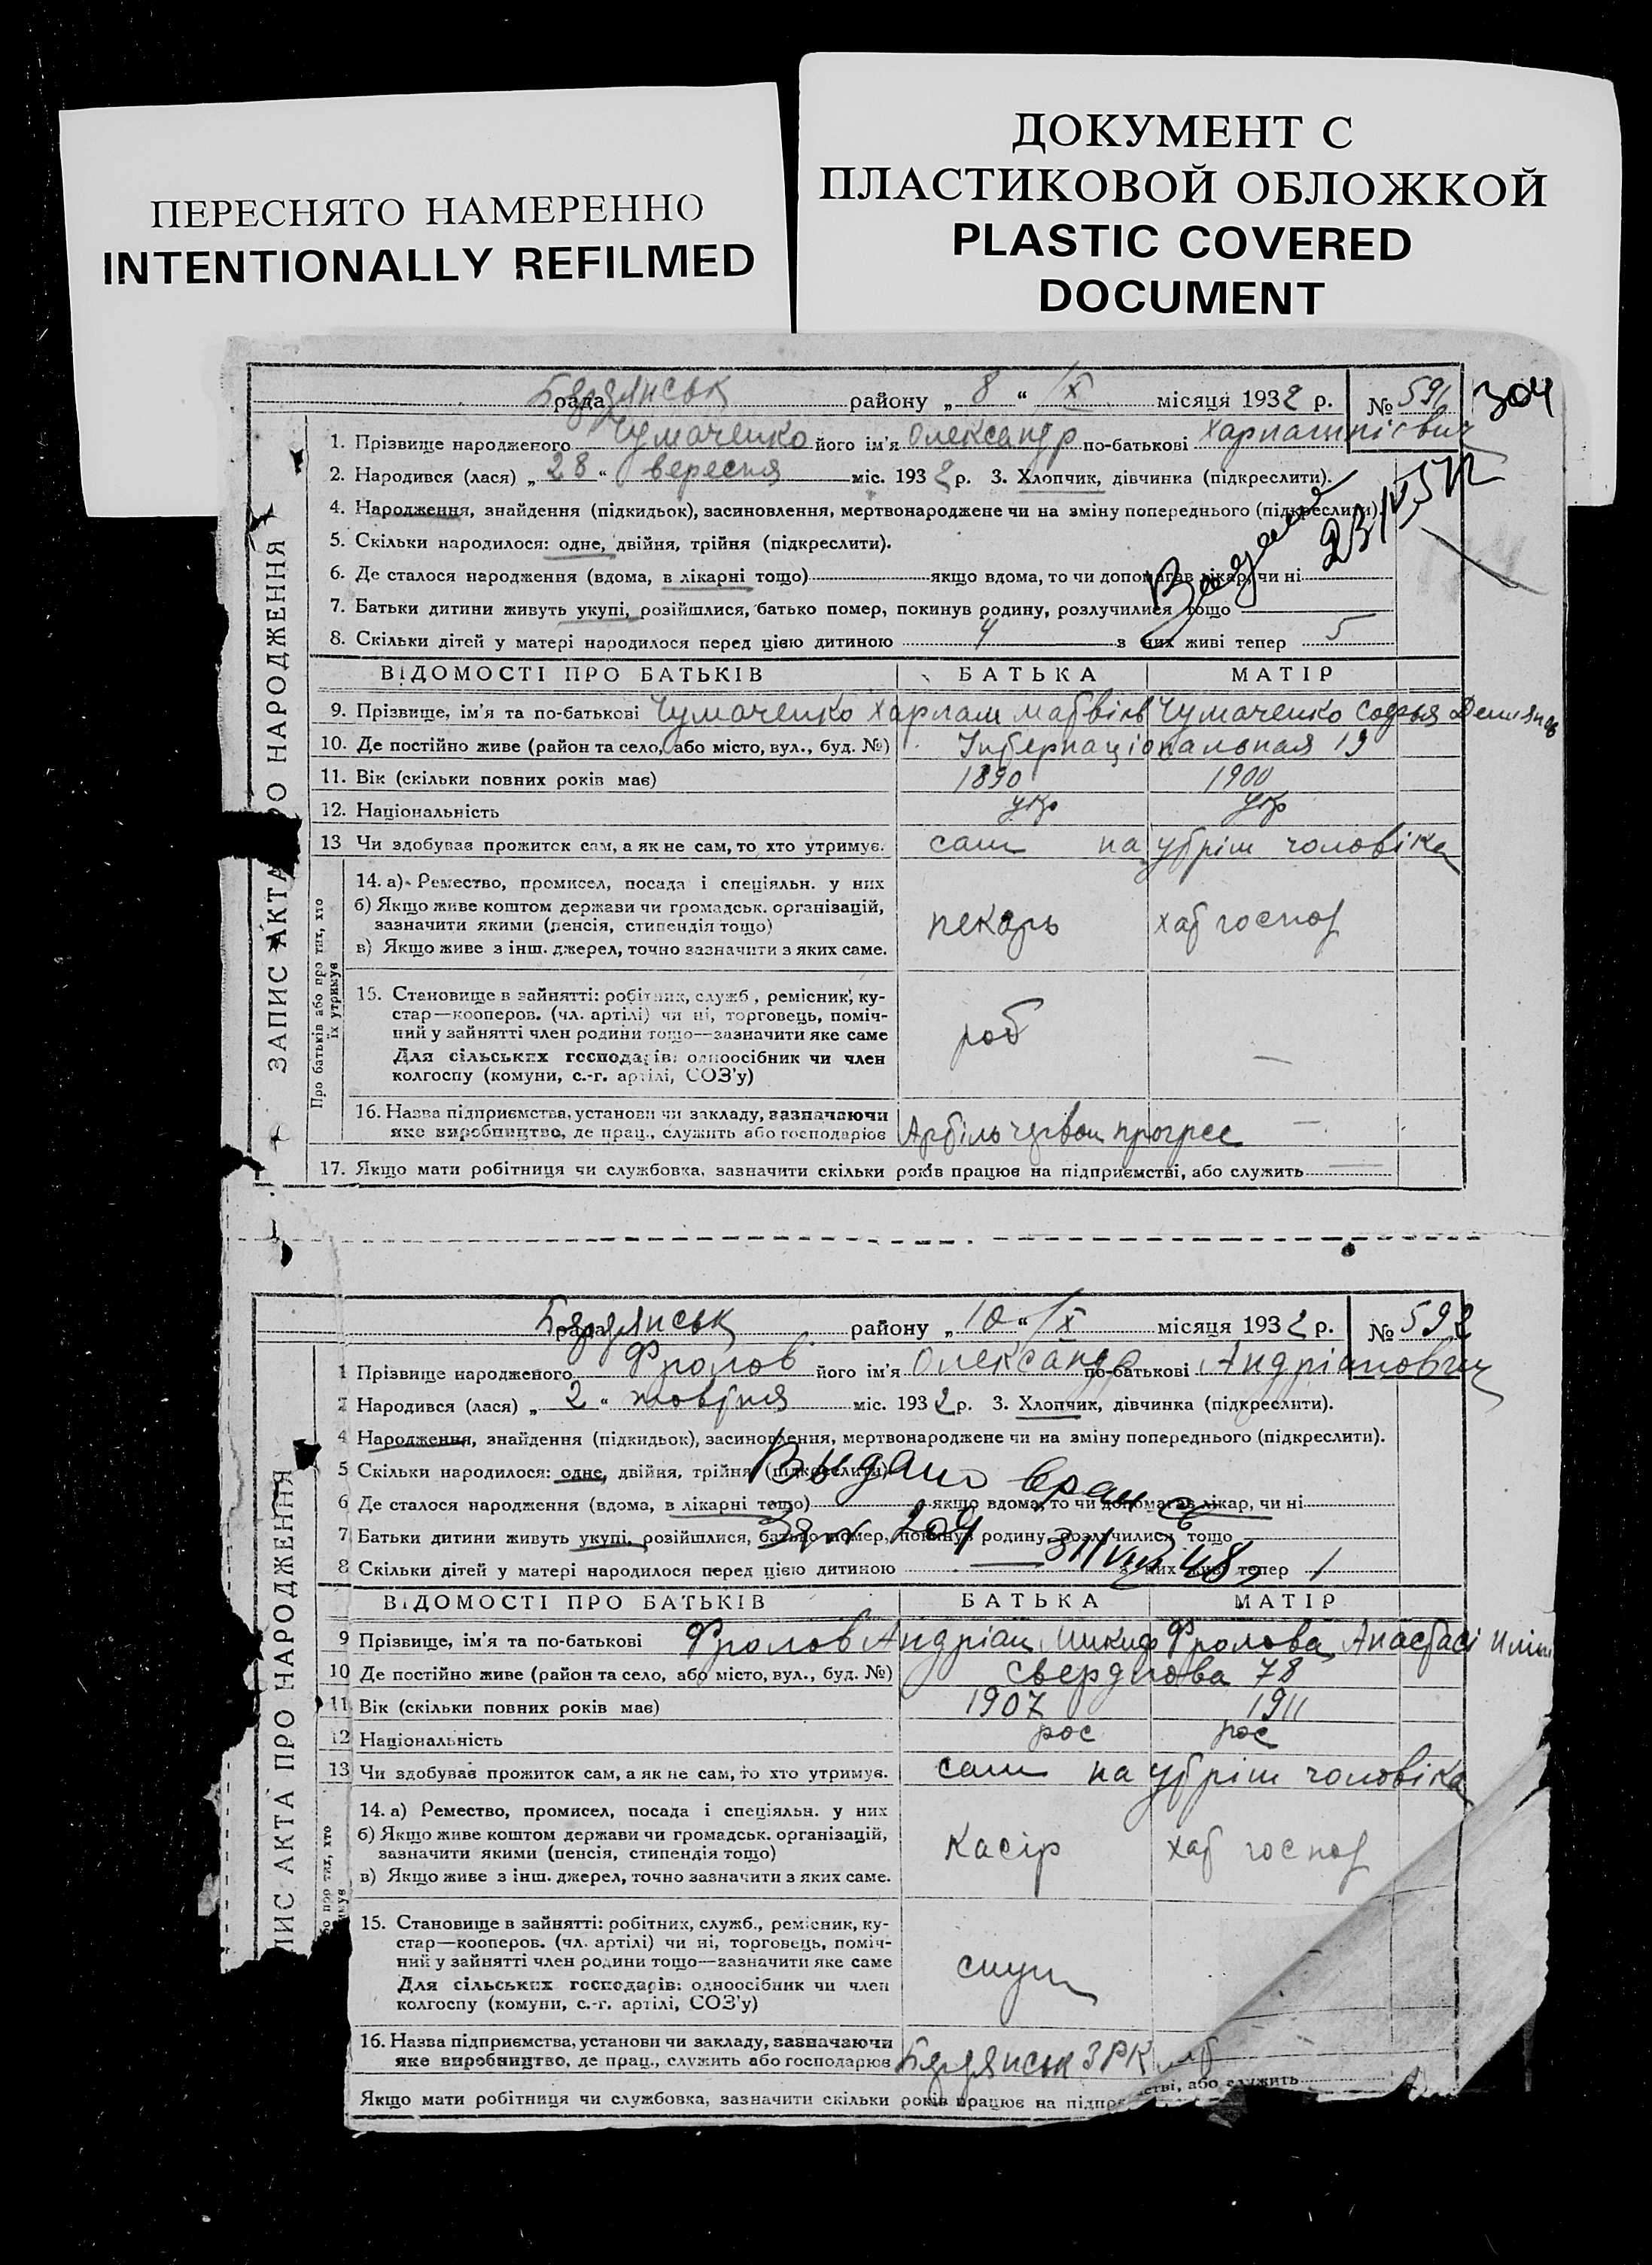 ПЕРЕСНЯТО НАМЕРЕННО
INTENTIONALLY REFILMED
ДОКУМЕНТ С
ПЛАСТИКОВОЙ ОБЛОЖКОЙ
PLASTIC COVERED
DOCUMENT
ЗАПИС АКТА ПРО НАРОДЖЕННЯ
Бердянськ рада району „ 8 “ /X місяця 1932 р. № 591
304
1. Прізвище народженого Чумаченко його ім'я Олександр по-батькові
2. Народився (лася) „ 28 “ вересня міс. 1932 р. 3. Хлопчик, дівчинка (підкреслити).
4. Народження, знайдення (підкидьок), засиновлення, мертвонароджене чи на зміну попереднього (підкреслити).
5. Скільки народилося: одне, двійня, трійня (підкреслити).
6. Де сталося народження (вдома, в лікарні тощо) якщо вдома, то чи допомагав лікар, чи ні
7. Батьки дитини живуть укупі, розійшлися, батько помер, покинув родину, розлучилися тощо
8. Скільки дітей у матері народилося перед цією дитиною 4 з них живі тепер 5
ВІДОМОСТІ ПРО БАТЬКІВ БАТЬКА МАТІР
9. Прізвище, ім'я та по-батькові Чумаченко Харлам Матвіїв Чумаченко Софья
10. Де постійно живе (район та село, або місто, вул., буд. №) Інтернаціональная 19
11. Вік (скільки повних років має) 1890 1900
12. Національність укр укр
13 Чи здобуває прожиток сам, а як не сам, то хто утримує. сам на утрім чоловіка
Про батьків або про тих, хто їх утримує
14. а) Ремество, промисел, посада і спеціяльн. у них
б) Якщо живе коштом держави чи громадськ. організацій,
зазначити якими (пенсія, стипендія тощо) пекарь хат господ
в) Якщо живе з інш. джерел, точно зазначити з яких саме.
15. Становище в зайнятті: робітник, служб., ремісник, ку-
стар—кооперов. (чл. артілі) чи ні, торговець, поміч-
ний у зайнятті член родини тощо—зазначити яке саме роб —
Для сільських господарів: одноосібник чи член
колгоспу (комуни, с.-г. артілі, СОЗ'у)
16. Назва підприємства, установи чи закладу, зазначаючи
яке виробництво, де прац., служить або господарює Артіль червон прогрес —
17. Якщо мати робітниця чи службовка, зазначити скільки років працює на підприємстві, або служить —
ПИС АКТА ПРО НАРОДЖЕННЯ
Бердянськ рада району „ 10 “ /X місяця 1932 р. № 592
1 Прізвище народженого Фролов його ім'я Олександр по-батькові Андріанович
2 Народився (лася) „ 2 “ жовтня міс. 1932 р. 3. Хлопчик, дівчинка (підкреслити).
4 Народження, знайдення (підкидьок), засиновлення, мертвонароджене чи на зміну попереднього (підкреслити).
5 Скільки народилося: одне, двійня, трійня (підкреслити)
Выдано
6 Де сталося народження (вдома, в лікарні тощо) якщо вдома, то чи допомагав лікар, чи ні
7 Батьки дитини живуть укупі, розійшлися, батько помер, покинув родину, розлучилися тощо
8 Скільки дітей у матері народилося перед цією дитиною — з них живі тепер 1
ВІДОМОСТІ ПРО БАТЬКІВ БАТЬКА МАТІР
9 Прізвище, ім'я та по-батькові Фролов Андріан Микиф Фролова Анастасі
10 Де постійно живе (район та село, або місто, вул., буд. №) Свердлова 78
11 Вік (скільки повних років має) 1907 1911
12 Національність рос рос
13 Чи здобуває прожиток сам, а як не сам, то хто утримує. сам на утрім чоловіка
14. а) Ремество, промисел, посада і спеціяльн. у них
б) Якщо живе коштом держави чи громадськ. організацій,
зазначити якими (пенсія, стипендія тощо) касір хат господ
в) Якщо живе з інш. джерел, точно зазначити з яких саме.
15. Становище в зайнятті: робітник, служб., ремісник, ку-
стар—кооперов. (чл. артілі) чи ні, торговець, поміч-
ний у зайнятті член родини тощо—зазначити яке саме служ
Для сільських господарів: одноосібник чи член
колгоспу (комуни, с.-г. артілі, СОЗ'у)
16. Назва підприємства, установи чи закладу, зазначаючи
яке виробництво, де прац., служить або господарює Бердянськ ЗРК
Якщо мати робітниця чи службовка, зазначити скільки років працює на підпри стві, або служить